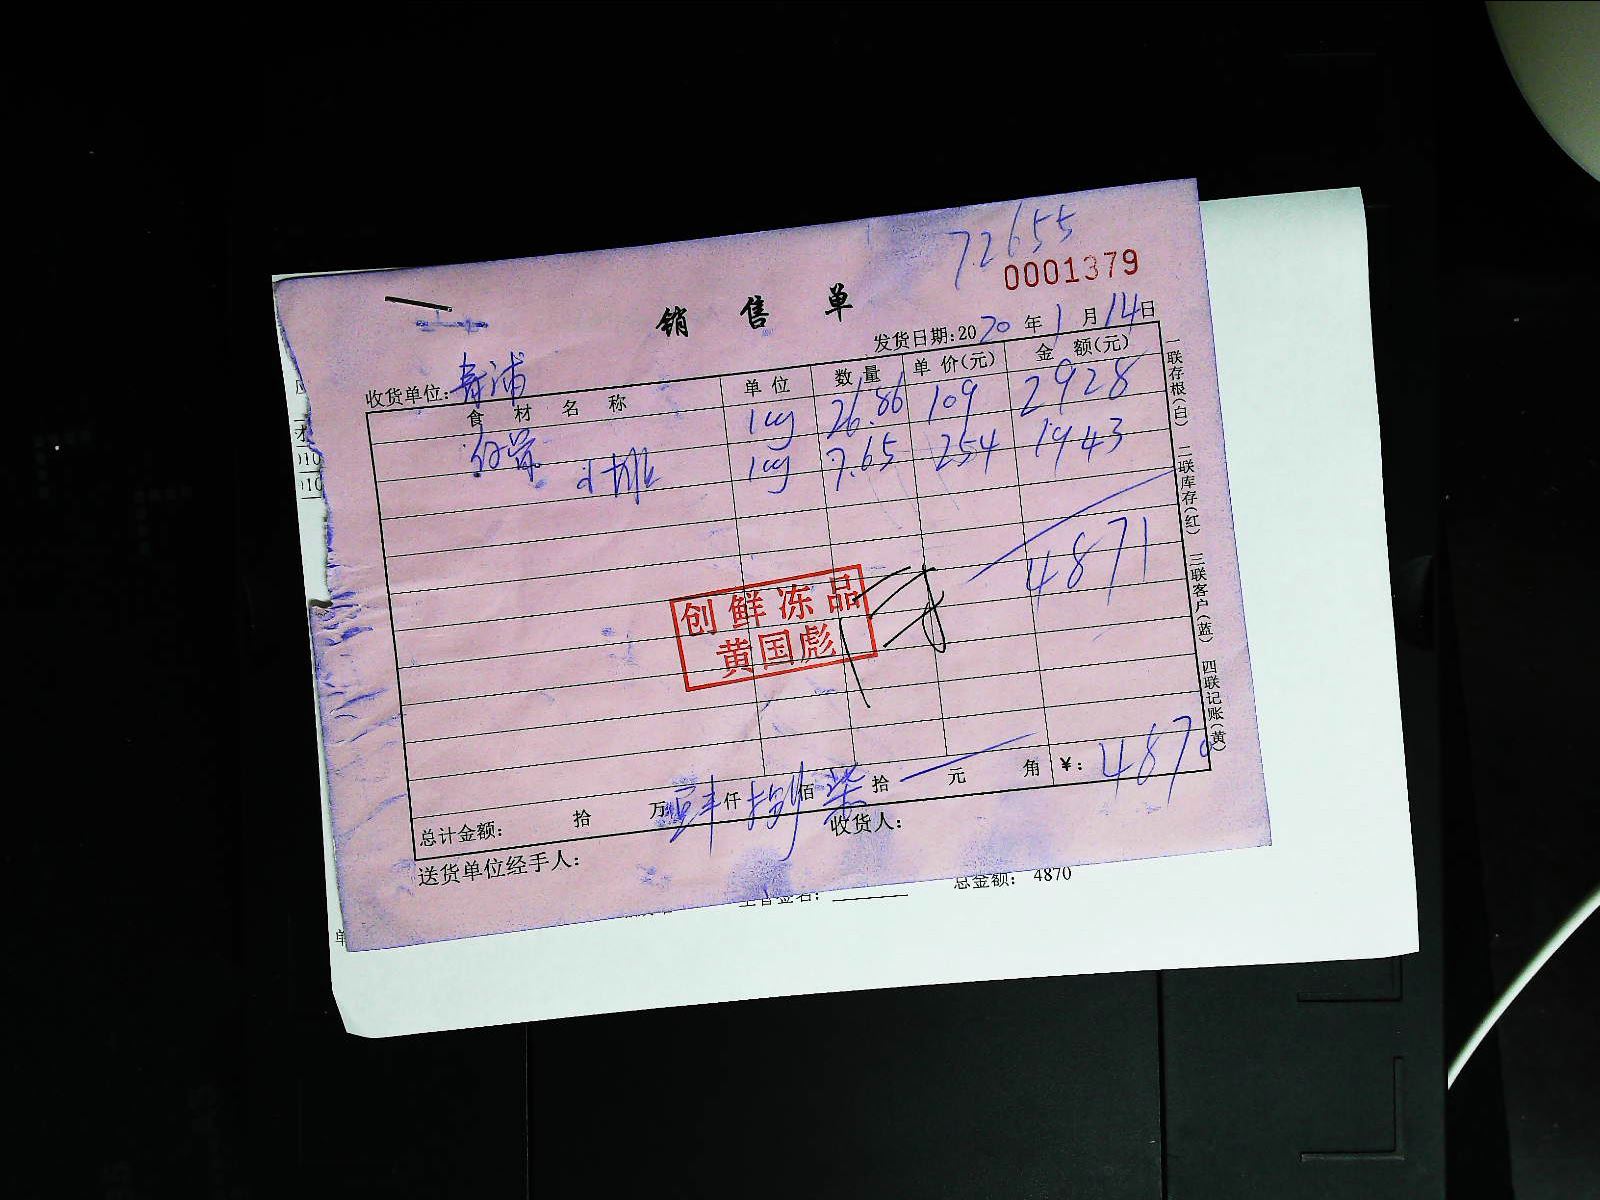 72655
0001379
销售单
发货日期:2020年1月14日
收货单位:
食材名称 单位 数量 单价(元) 金额(元)
kg 26.86 109 2928
小排 kg 7.65 254 1943
4871
创鲜冻品
黄国彪
总计金额: 拾 万肆仟捌佰柒拾 元 角 ¥: 4870
送货单位经手人: 收货人:
一联存根(白) 二联库存(红) 三联客户(蓝) 四联记账(黄)
总金额: 4870